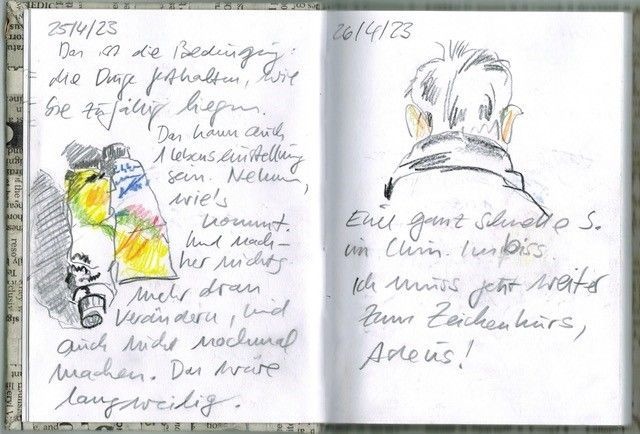 25/4/23
Das ist die Bedingung:
die Dinge festhalten, wie
sie zufällig liegen.
Das kann auch
1 Lebenseinstellung
sein. Nehmen,
wie's
kommt.
Und nach-
her nichts
mehr dran
verändern, und
auch nicht nochmal
machen. Das wäre
langweilig.
26/4/23
Eine ganz schnelle S.
im Chin. Imbiss.
Ich muss jetzt weiter
zum Zeichenkurs,
Adeus!